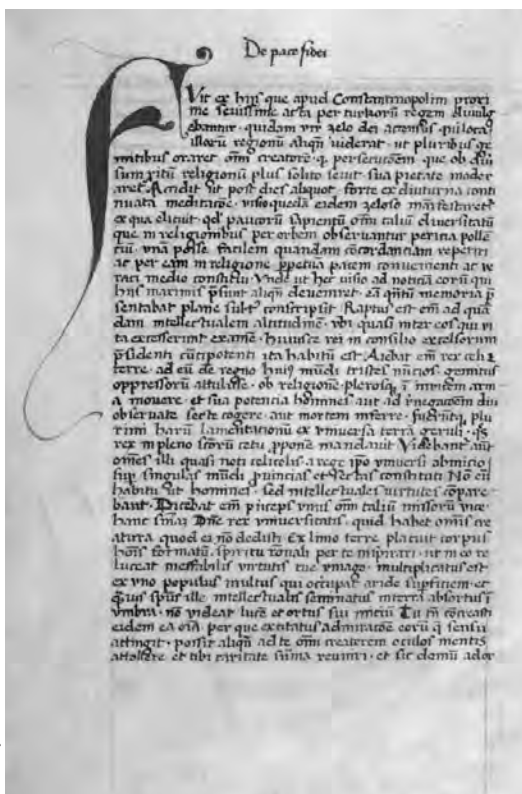 De pace fidei
Vit ex hijs que apud Constantinopolim proxi
me sevissime acta per turkorū regem divulg
ebantur · quidam vir zelo dei accensus · qui loca
illorū regionū aliqn̄ viderat · ut pluribus ge
mitibus oraret om̄ creatorē · q̄ persecutōem · que ob div̄
sum ritū religionū plus solito sevit · sua pietate moder
aret Accidit ut post dies aliquot · forte ex diuturna conti
nuata meditacōe · visio quedā eidem zeloso manifestaret᷑
ex qua elicuit · qd̓ paucorū sapientū om̄ taliū diversitatū
que in religionibus per orbem observantur pericia polle
tiū · unā posse facilem quandam cōcordanciam reperiri
ac per eam in religione p̱petuā pacem convenienti ac ve
raci medio constitui Unde ut hec visio ad noticiā eorū qui
hijs maximis p̄sunt aliqn̄ deveniret · eā qn̄tū memoria p̄
sentabat plane subt᷑ conscripsit Raptus est em̄ ad quā
dam intellectualem altitudinē · ubi quasi inter eos qui vi
ta excesserunt examē · huiusce rei in consilio excelsorum
p̄sidenti cūctipotenti ita habitū est Aiebat em̄ rex celi z
terre · ad eū de regno huiꝰ mūdi tristes nūcios · gemitus
oppressorū attulisse · ob religionē · plerosq̨ ī invicem arm
a movere · et sua potencia homines aut ad r̄negacōem diu
observate secte cogere · aut mortem inferre · fuerūtq̨ plu
rimi harū lamentacionū ex universa terrā geruli · qs̄
rex in pleno sc̄torū cetu p̱ponē mandavit Videbant᷑ aūt
omēs illi quasi noti celicolis · a rege ip̄o universi ab inicio
suꝑ singulas mūdi ꝓvincias et sectas constituti Nō em̄
habitu ut homines · sed intellectuales virtutes cōpare
bant · Dicebat em̄ princeps unus om̄ taliū missorū vice ·
hanc sn̄iaȝ Dn̄e rex universitatis · quid habet om̄is cre
atura quod ei nō dedisti Ex limo terre placuit corpus
hoīs formatū · spiritu rōnali per te inspirari · ut in eo re
luceat ineffabilis virtutis tue ymago · multiplicatus est
ex uno populus multus qui occupat aride suꝑficiem · et
quis spūs ille intellectualis seminatus in terra absortus ī
umbra · nō videat lucē et ortus sui iniciū Tu tn̄ concreasti
eidem ea oīa · per que excitatus admiracōe eorū q̄ sensu
attingit · possit aliqn̄ ad te om̄ creatorem oculos mentis
attollere et tibi caritate sūma reuniri · et sic domū ador